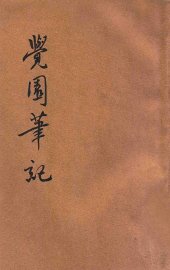 覺園筆記